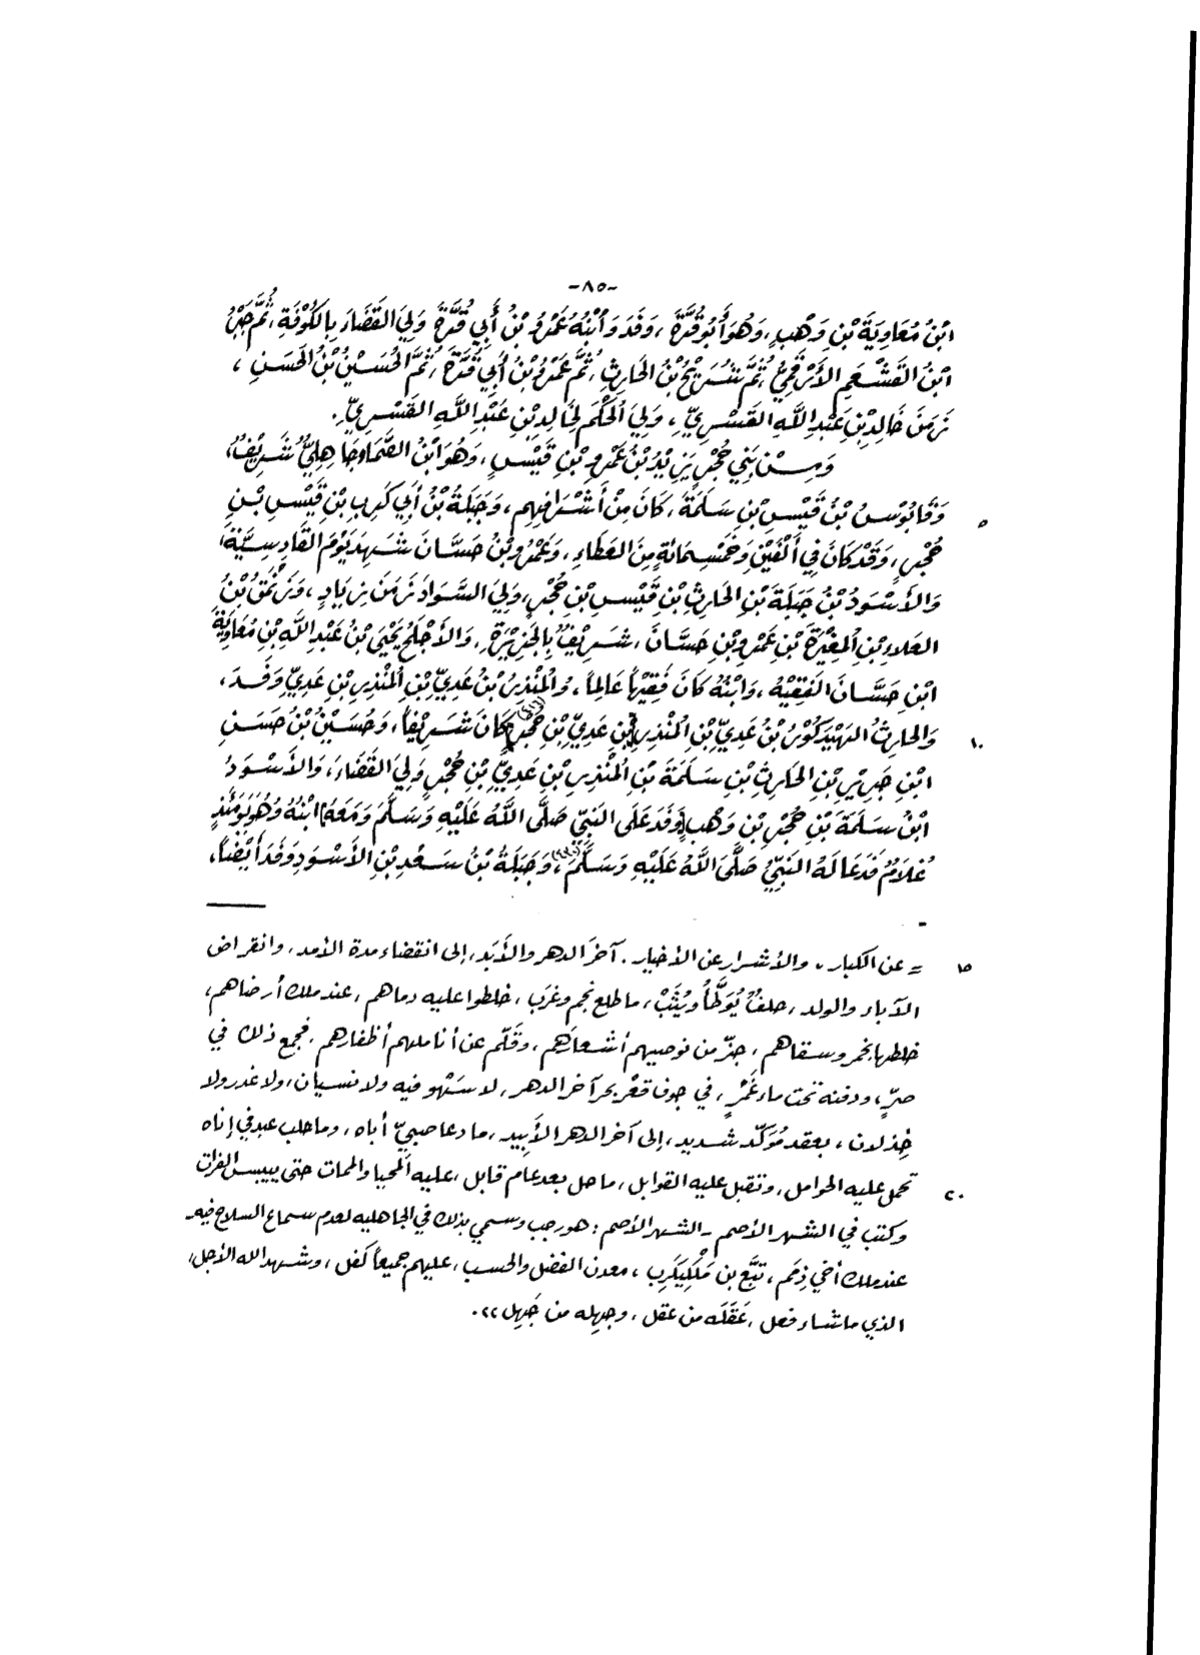 -٨٥-
ابْنُ مُعَاوِيَةَ بْنِ وَهْبٍ، وَهُوَ أَبُو قُرَّةَ، وَفَدَ وَابْنُهُ عَمْرُو بْنُ أَبِي قُرَّةَ وَلِيَ القَضَاءَ بِالكُوفَةِ، ثُمَّ جَبْرُ
ابْنُ القَشْعَمِ الأَرْقَمِيُّ، ثُمَّ شُرَيْحُ بْنُ الحَارِثِ، ثُمَّ عَمْرُو بْنُ أَبِي قُرَّةَ، ثُمَّ الحُسَيْنُ بْنُ الحَسَنِ،
زَمَنَ خَالِدِ بْنِ عَبْدِ اللَّهِ القَسْرِيِّ، وَلِيَ الحُكْمَ لِخَالِدِ بْنِ عَبْدِ اللَّهِ القَسْرِيِّ.
وَمِنْ بَنِي حُجْرٍ يَزِيدُ بْنُ عَمْرِو بْنِ قَيْسٍ، وَهُوَ ابْنُ الصَّمَّاءِ جَاهِلِيٌّ شَرِيْفٌ،
٥ وَقَابُوْسُ بْنُ قَيْسِ بْنِ سَلَمَةَ، كَانَ مِنْ أَشْرَافِهِم، وَجَبَلَةُ بْنُ أَبِي كَرِبِ بْنِ قَيْسِ بْنِ
حُجْرٍ، وَقَدْ كَانَ فِي أَلْفَيْنِ وَخَمْسِمَائَةٍ مِنَ العَطَاءِ، وَعَمْرُو بْنُ حَسَّانَ شَهِدَ يَوْمَ القَادِسِيَّةِ،
وَالأَسْوَدُ بْنُ جَبَلَةَ بْنِ الحَارِثِ بْنِ قَيْسِ بْنِ حُجْرٍ، وَلِيَ السَّوَادَ زَمَنَ زِيَادٍ، وَنَمِقُ بْنُ
العَلَاءِ بْنِ المُغِيْرَةِ بْنِ عَمْرِو بْنِ حَسَّانَ، شَرِيْفٌ بِالجَزِيْرَةِ، وَالأَجْلَحُ يَحْيَى بْنُ عَبْدِ اللَّهِ بْنِ مُعَاوِيَةَ
ابْنِ حَسَّانَ الفَقِيْهُ، وَابْنُهُ كَانَ فَقِيْهاً عَالِماً، وَالمُنْذِرُ بْنُ عَدِيِّ بْنِ المُنْذِرِ بْنِ عَدِيٍّ وَفَدَ،
١٠ وَالحَارِثُ بْنُ عَدِيِّ بْنِ المُنْذِرِ بْنِ عَدِيِّ بْنِ حُجْرٍ كَانَ شَرِيْفاً، وَحُسَيْنُ بْنُ حَسَنِ
ابْنِ جَرِيْرِ بْنِ الحَارِثِ بْنِ سَلَمَةَ بْنِ المُنْذِرِ بْنِ عَدِيِّ بْنِ حُجْرٍ وَلِيَ القَضَاءَ، وَالأَسْوَدُ
ابْنُ سَلَمَةَ بْنِ حُجْرِ بْنِ وَهْبٍ وَفَدَ عَلَى النَّبِيِّ صَلَّى اللَّهُ عَلَيْهِ وَسَلَّمَ وَمَعَهُ ابْنُهُ وَهُوَ يَوْمَئِذٍ
غُلَامٌ فَدَعَا لَهُ النَّبِيُّ صَلَّى اللَّهُ عَلَيْهِ وَسَلَّمَ، وَجَبَلَةُ بْنُ سَعْدِ بْنِ الأَسْوَدِ وَفَدَ أَيْضاً،
١٥ = عن الكبار، والأشرار عن الأخيار. آخرَ الدهر والأَبَد، إلى انقضاء مدة الأمد، وانقراض
الآباء والولد، حلفٌ يُوَطَّأُ ويُثَبّ، ما طلع نجم وغرَب، خلطوا عليه دماهم، عند ملك أرضاهم،
خلطها بخمر وسقاهم، جزّ من نوصيهم أشعارَهم، وقَلّم عن أناملهم أظفارهم، فجمع ذلك في
صرّ، ودفنه تحت ماء غَمْرٍ، في جوف قعر بحر آخر الدهر، لا سَهْو فيه ولا نسيان، ولا غدر ولا
خِذلان، بعقد مُوَكّد شديد، إلى آخر الدهر الأَبِيد، ما دعا صبيّ أباه، وما حلب عبد في إناه
٢٠ تحمل عليه الحوامل، وتقبل عليه القوابل، ما حل بعد عام قابل، عليه المحيا والممات حتى ييبس الفرات
وكتب في الشهر الأصم ـ الشهر الأصم: هو رجب وسمي بذلك في الجاهليه لعدم سماع السلاح فيه ـ
عند ملك أخي ذِمَم، تبَّع بن مَلْكِيكَرِب، معدن الفضل والحسب، عليهم جميعاً كفل، وشهد الله الأجل،
الذي ما شاء فعل، عَقَلَه من عقل، وجهِله من جَهِل ،،.